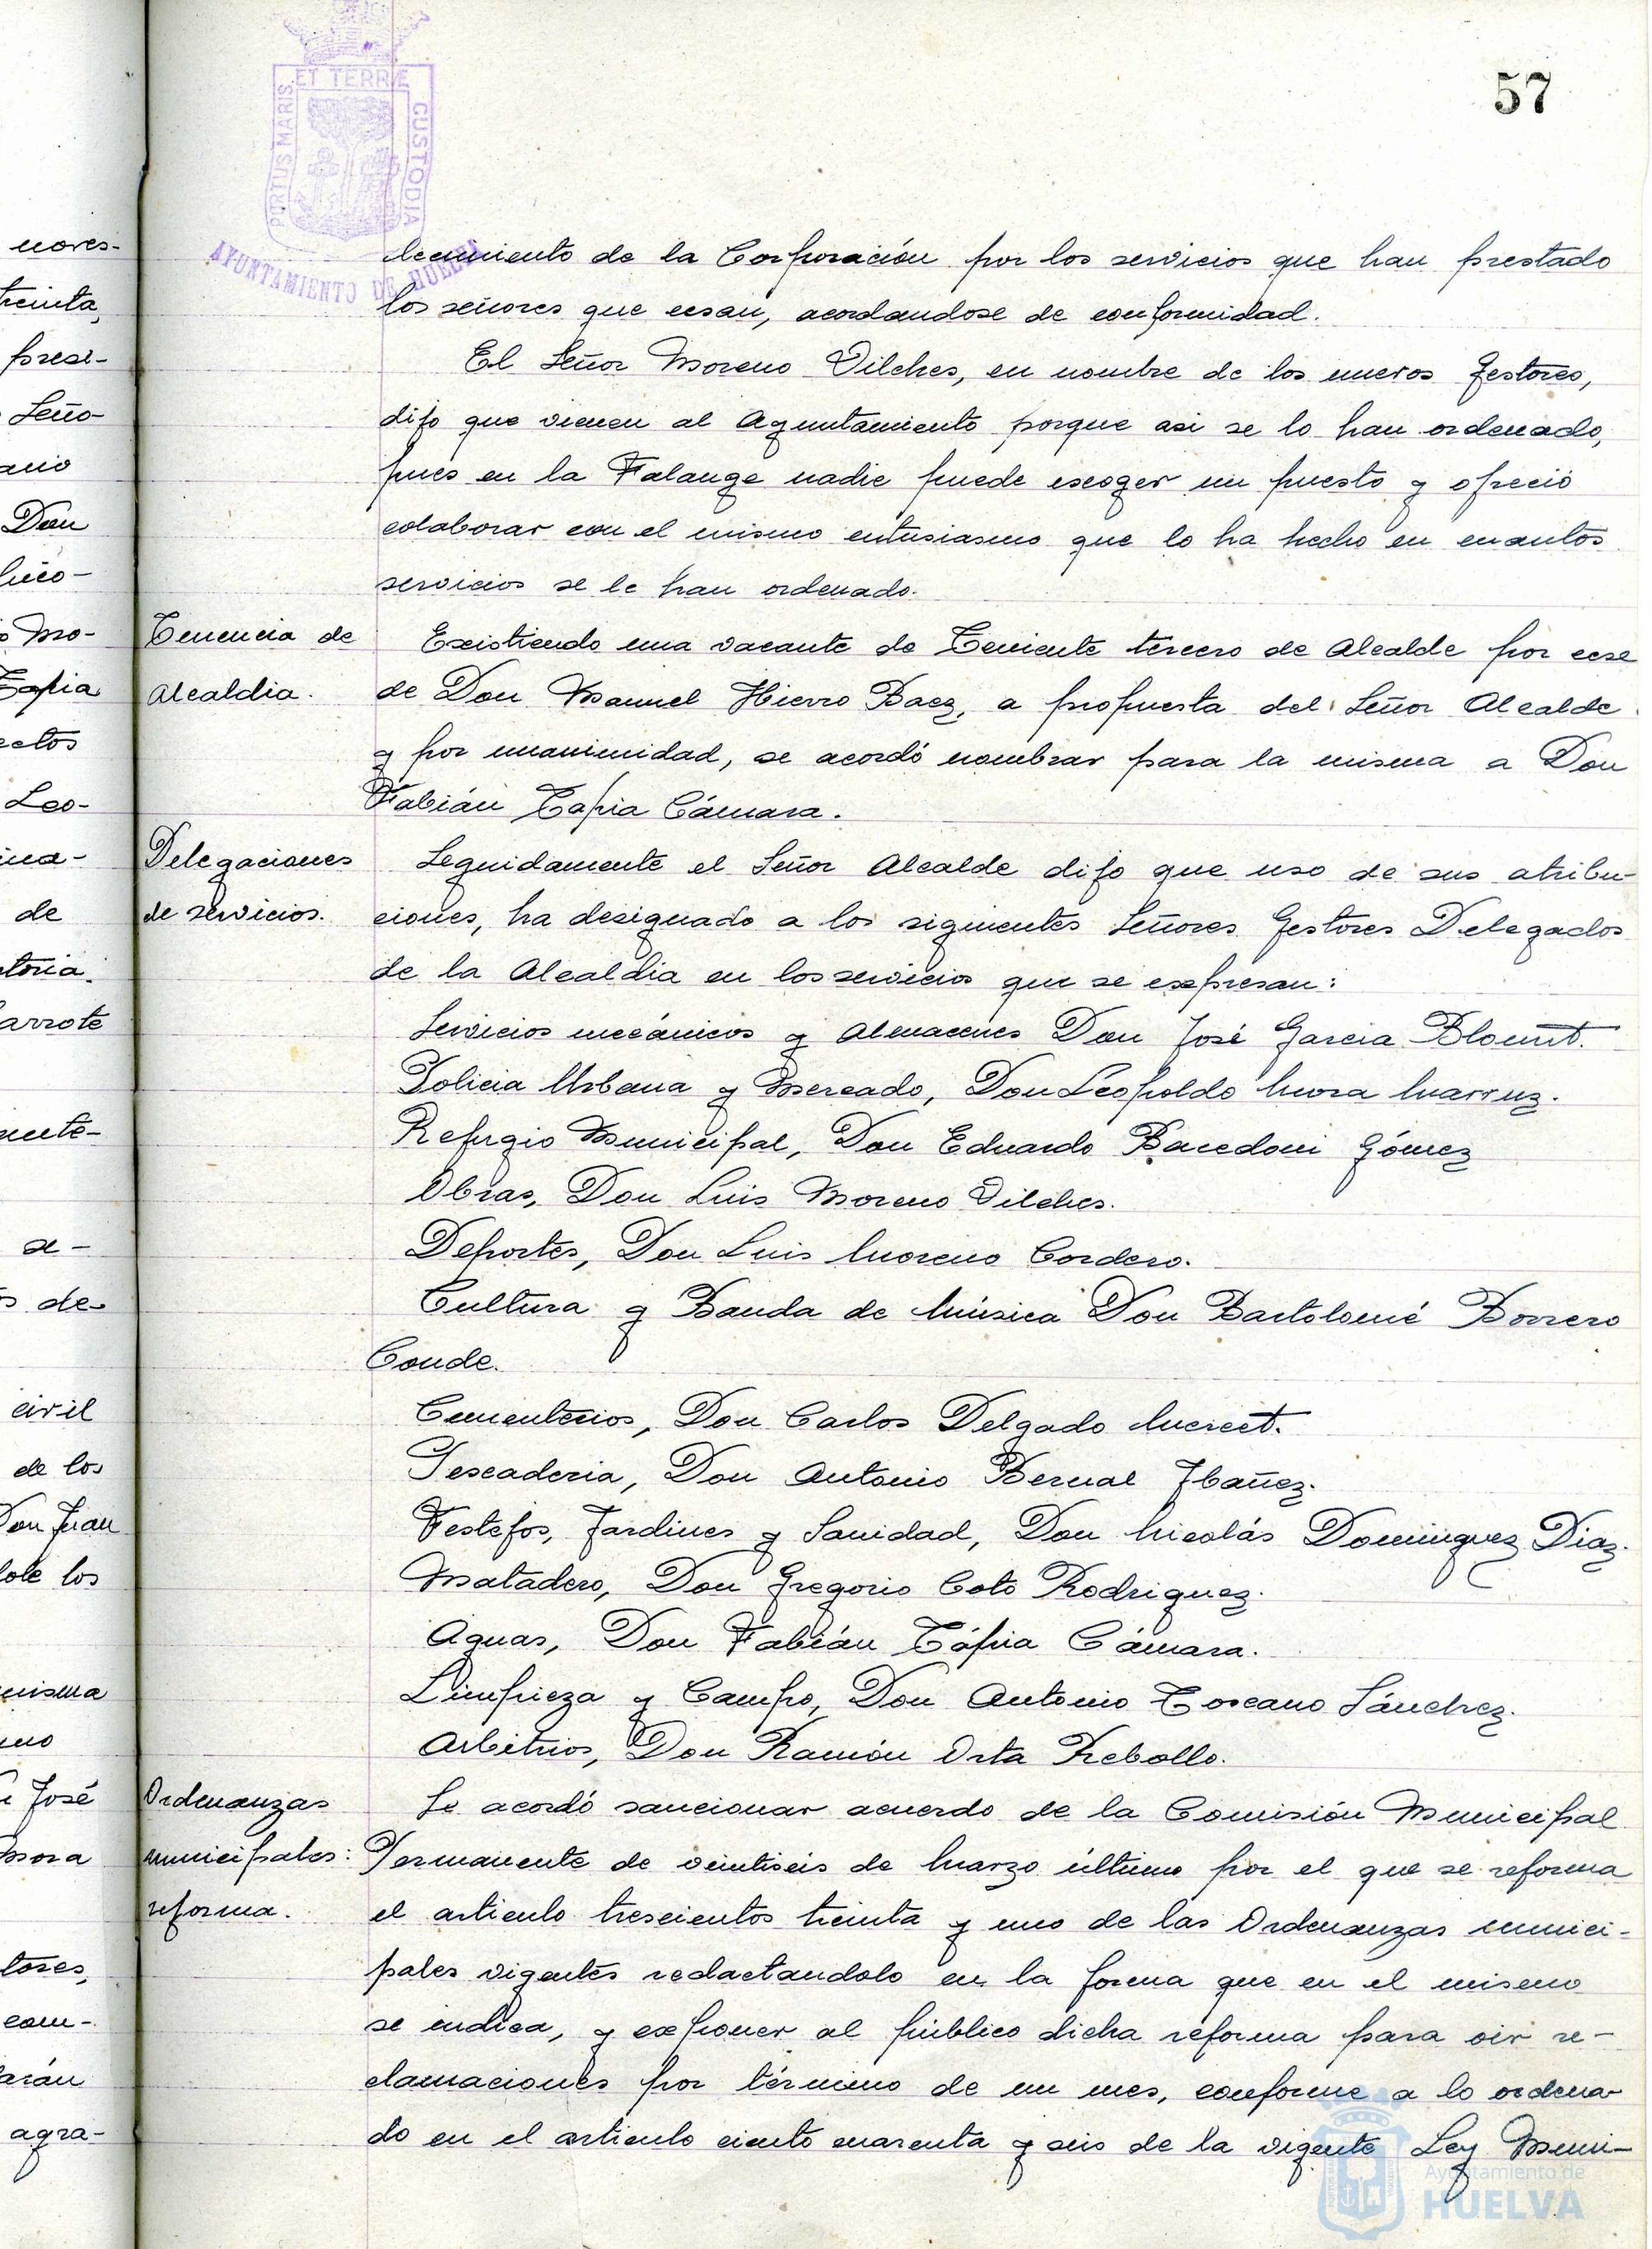 57
PORTUS MARIS ET TERRE CUSTODIA
AYUNTAMIENTO DE HUELVA
decimiento de la Corporación por los servicios que han prestado
los señores que cesan, acordandose de conformidad.
El Señor Moreno Vilches, en nombre de los nuevos Gestores,
dijo que vienen al Ayuntamiento porque asi se lo han ordenado,
pues en la Falange nadie puede escoger un puesto y ofreció
colaborar con el mismo entusiasmo que lo ha hecho en cuantos
servicios se le han ordenado.
Tenencia de
Alcaldia.
Existiendo una vacante de Teniente tercero de Alcalde por cese
de Don Manuel Hierro Baez, a propuesta del Señor Alcalde
y por unanimidad, se acordó nombrar para la misma a Don
Fabián Tapia Cámara.
Delegaciones
de servicios.
Seguidamente el Señor Alcalde dijo que uso de sus atribu-
ciones, ha designado a los siguientes Señores Gestores Delegados
de la Alcaldia en los servicios que se expresan:
Servicios mecánicos y Almacenes Don José Garcia Blount.
Policia Urbana y Mercado, Don Leopoldo Mora Marruz.
Refugio Municipal, Don Eduardo Bacedoni Gómez
Obras, Don Luis Moreno Vilches.
Deportes, Don Luis Moreno Cordero.
Cultura y Banda de Música Don Bartolomé Borrero
Conde.
Cementerios, Don Carlos Delgado Merect.
Pescaderia, Don Antonio Bernal Ibañez.
Festejos, Jardines y Sanidad, Don Nicolás Dominguez Diaz.
Matadero, Don Gregorio Coto Rodriguez.
Aguas, Don Fabián Tápia Cámara.
Limpieza y Campo, Don Antonio Toscano Sánchez.
Arbitrios, Don Ramón Orta Rebollo.
Ordenanzas
municipales:
reforma.
Se acordó sancionar acuerdo de la Comisión Municipal
Permanente de veintiseis de Marzo último por el que se reforma
el articulo trescientos treinta y uno de las Ordenanzas munici-
pales vigentes redactandolo en la forma que en el mismo
se indica, y exponer al público dicha reforma para oir re-
clamaciones por término de un mes, conforme a lo ordena-
do en el articulo ciento cuarenta y seis de la vigente Ley Muni-
Ayuntamiento de
HUELVA